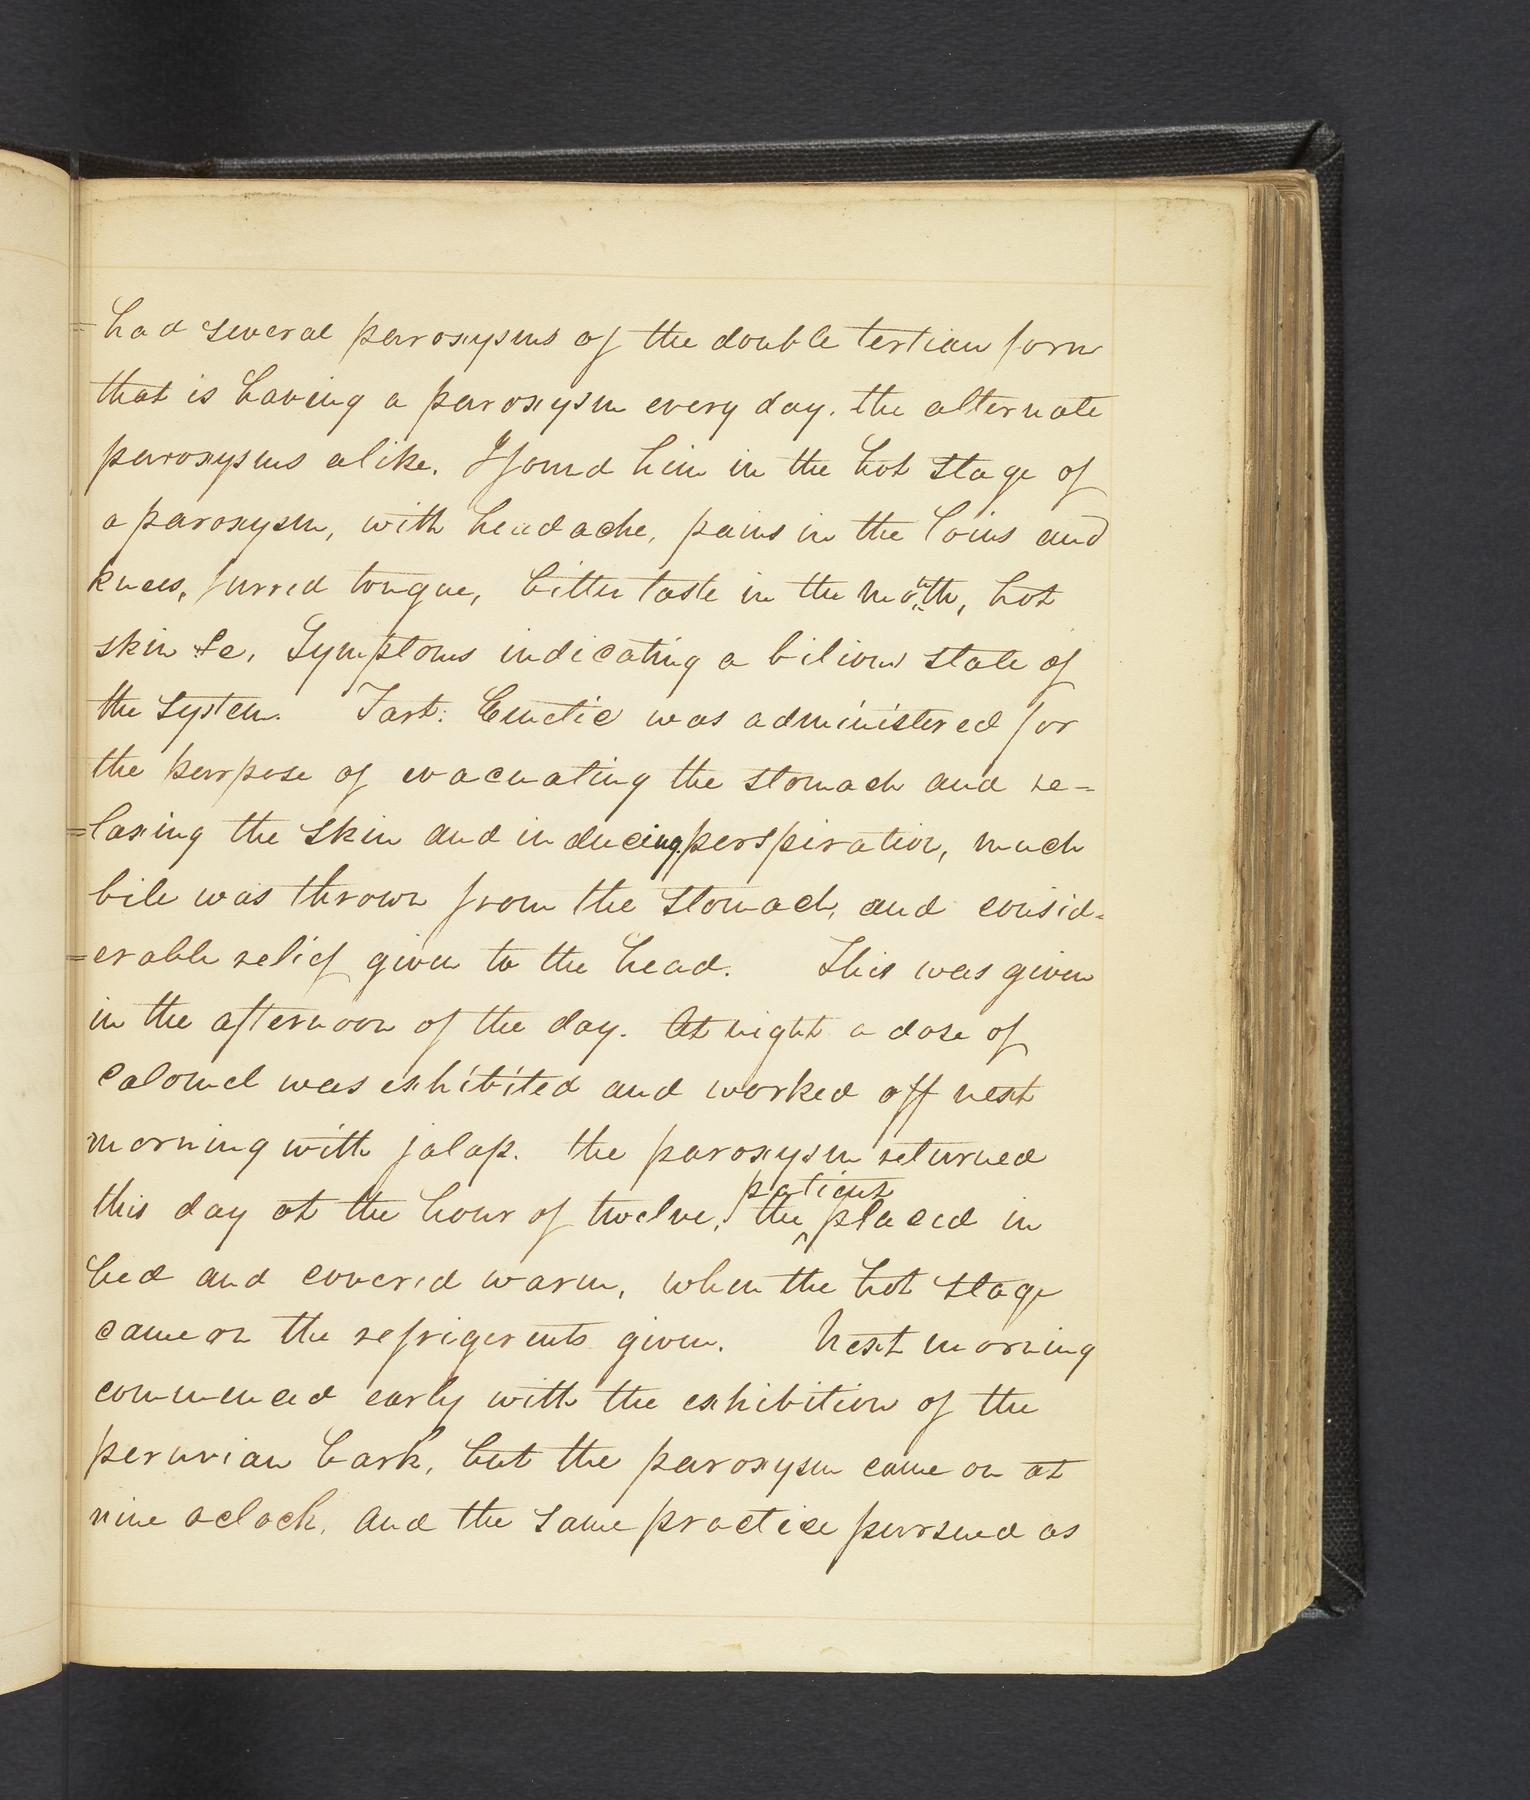 =had several paroxysms of the double tertian form
that is having a paroxysm every day. the alternate
paroxysms alike. I found him in the hot stage of
a paroxysm, with headache, pains in the loins and
knees, furred tongue, bitter taste in the mouth, hot
skin &c. Symptoms indicating a bilious state of
the system. Tart: Emetic was administered for
the purpose of evacuating the stomach and re-
=laxing the skin and inducing perspiration, much
bile was thrown from the stomach, and consid-
=erable relief given to the head. This was given
in the afternoon of the day. At night a dose of
calomel was exhibited and worked off next
morning with jalap. the paroxysm returned
this day at the hour of twelve, the patient placed in
bed and covered warm, when the hot stage
came on the refrigerents given. Next morning
commenced early with the exhibition of the
peruvian bark, but the paroxysm came on at
nine oclock, and the same practice pursued as